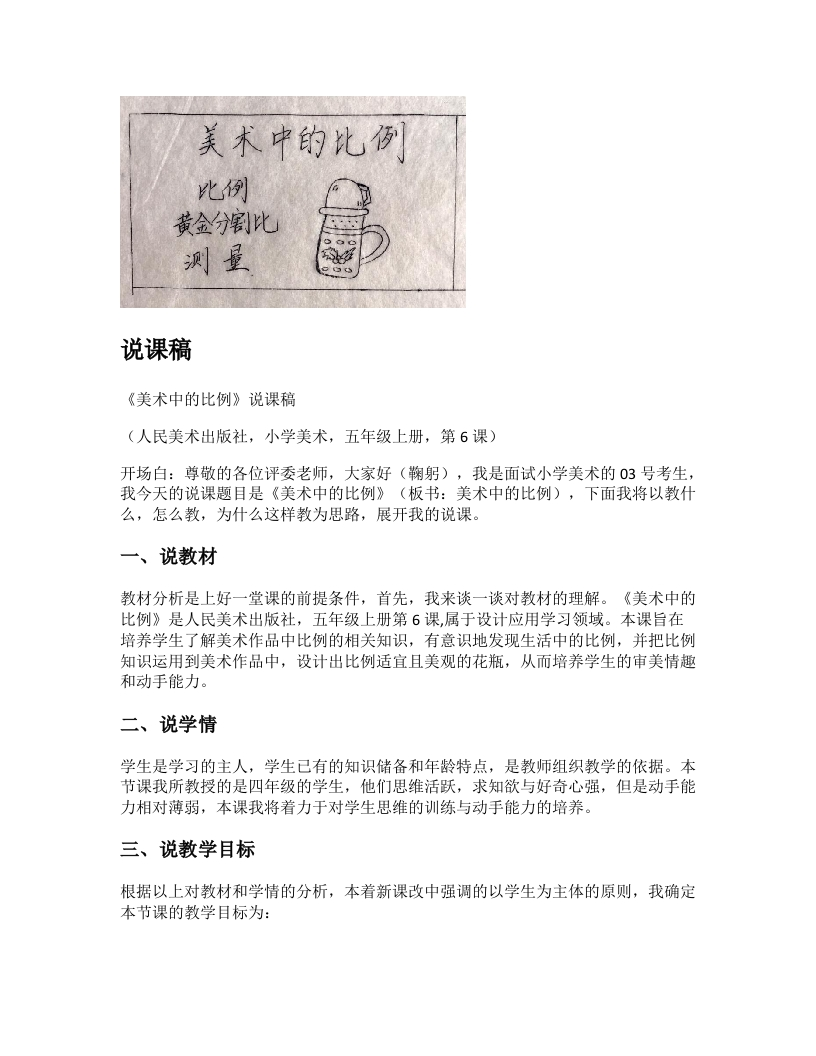 美术中的比例
比例
黄金分割比
测量
说课稿
《美术中的比例》说课稿
（人民美术出版社，小学美术，五年级上册，第 6 课）
开场白：尊敬的各位评委老师，大家好（鞠躬），我是面试小学美术的 03 号考生，
我今天的说课题目是《美术中的比例》（板书：美术中的比例），下面我将以教什
么，怎么教，为什么这样教为思路，展开我的说课。
一、说教材
教材分析是上好一堂课的前提条件，首先，我来谈一谈对教材的理解。《美术中的
比例》是人民美术出版社，五年级上册第 6 课,属于设计应用学习领域。本课旨在
培养学生了解美术作品中比例的相关知识，有意识地发现生活中的比例，并把比例
知识运用到美术作品中，设计出比例适宜且美观的花瓶，从而培养学生的审美情趣
和动手能力。
二、说学情
学生是学习的主人，学生已有的知识储备和年龄特点，是教师组织教学的依据。本
节课我所教授的是四年级的学生，他们思维活跃，求知欲与好奇心强，但是动手能
力相对薄弱，本课我将着力于对学生思维的训练与动手能力的培养。
三、说教学目标
根据以上对教材和学情的分析，本着新课改中强调的以学生为主体的原则，我确定
本节课的教学目标为：